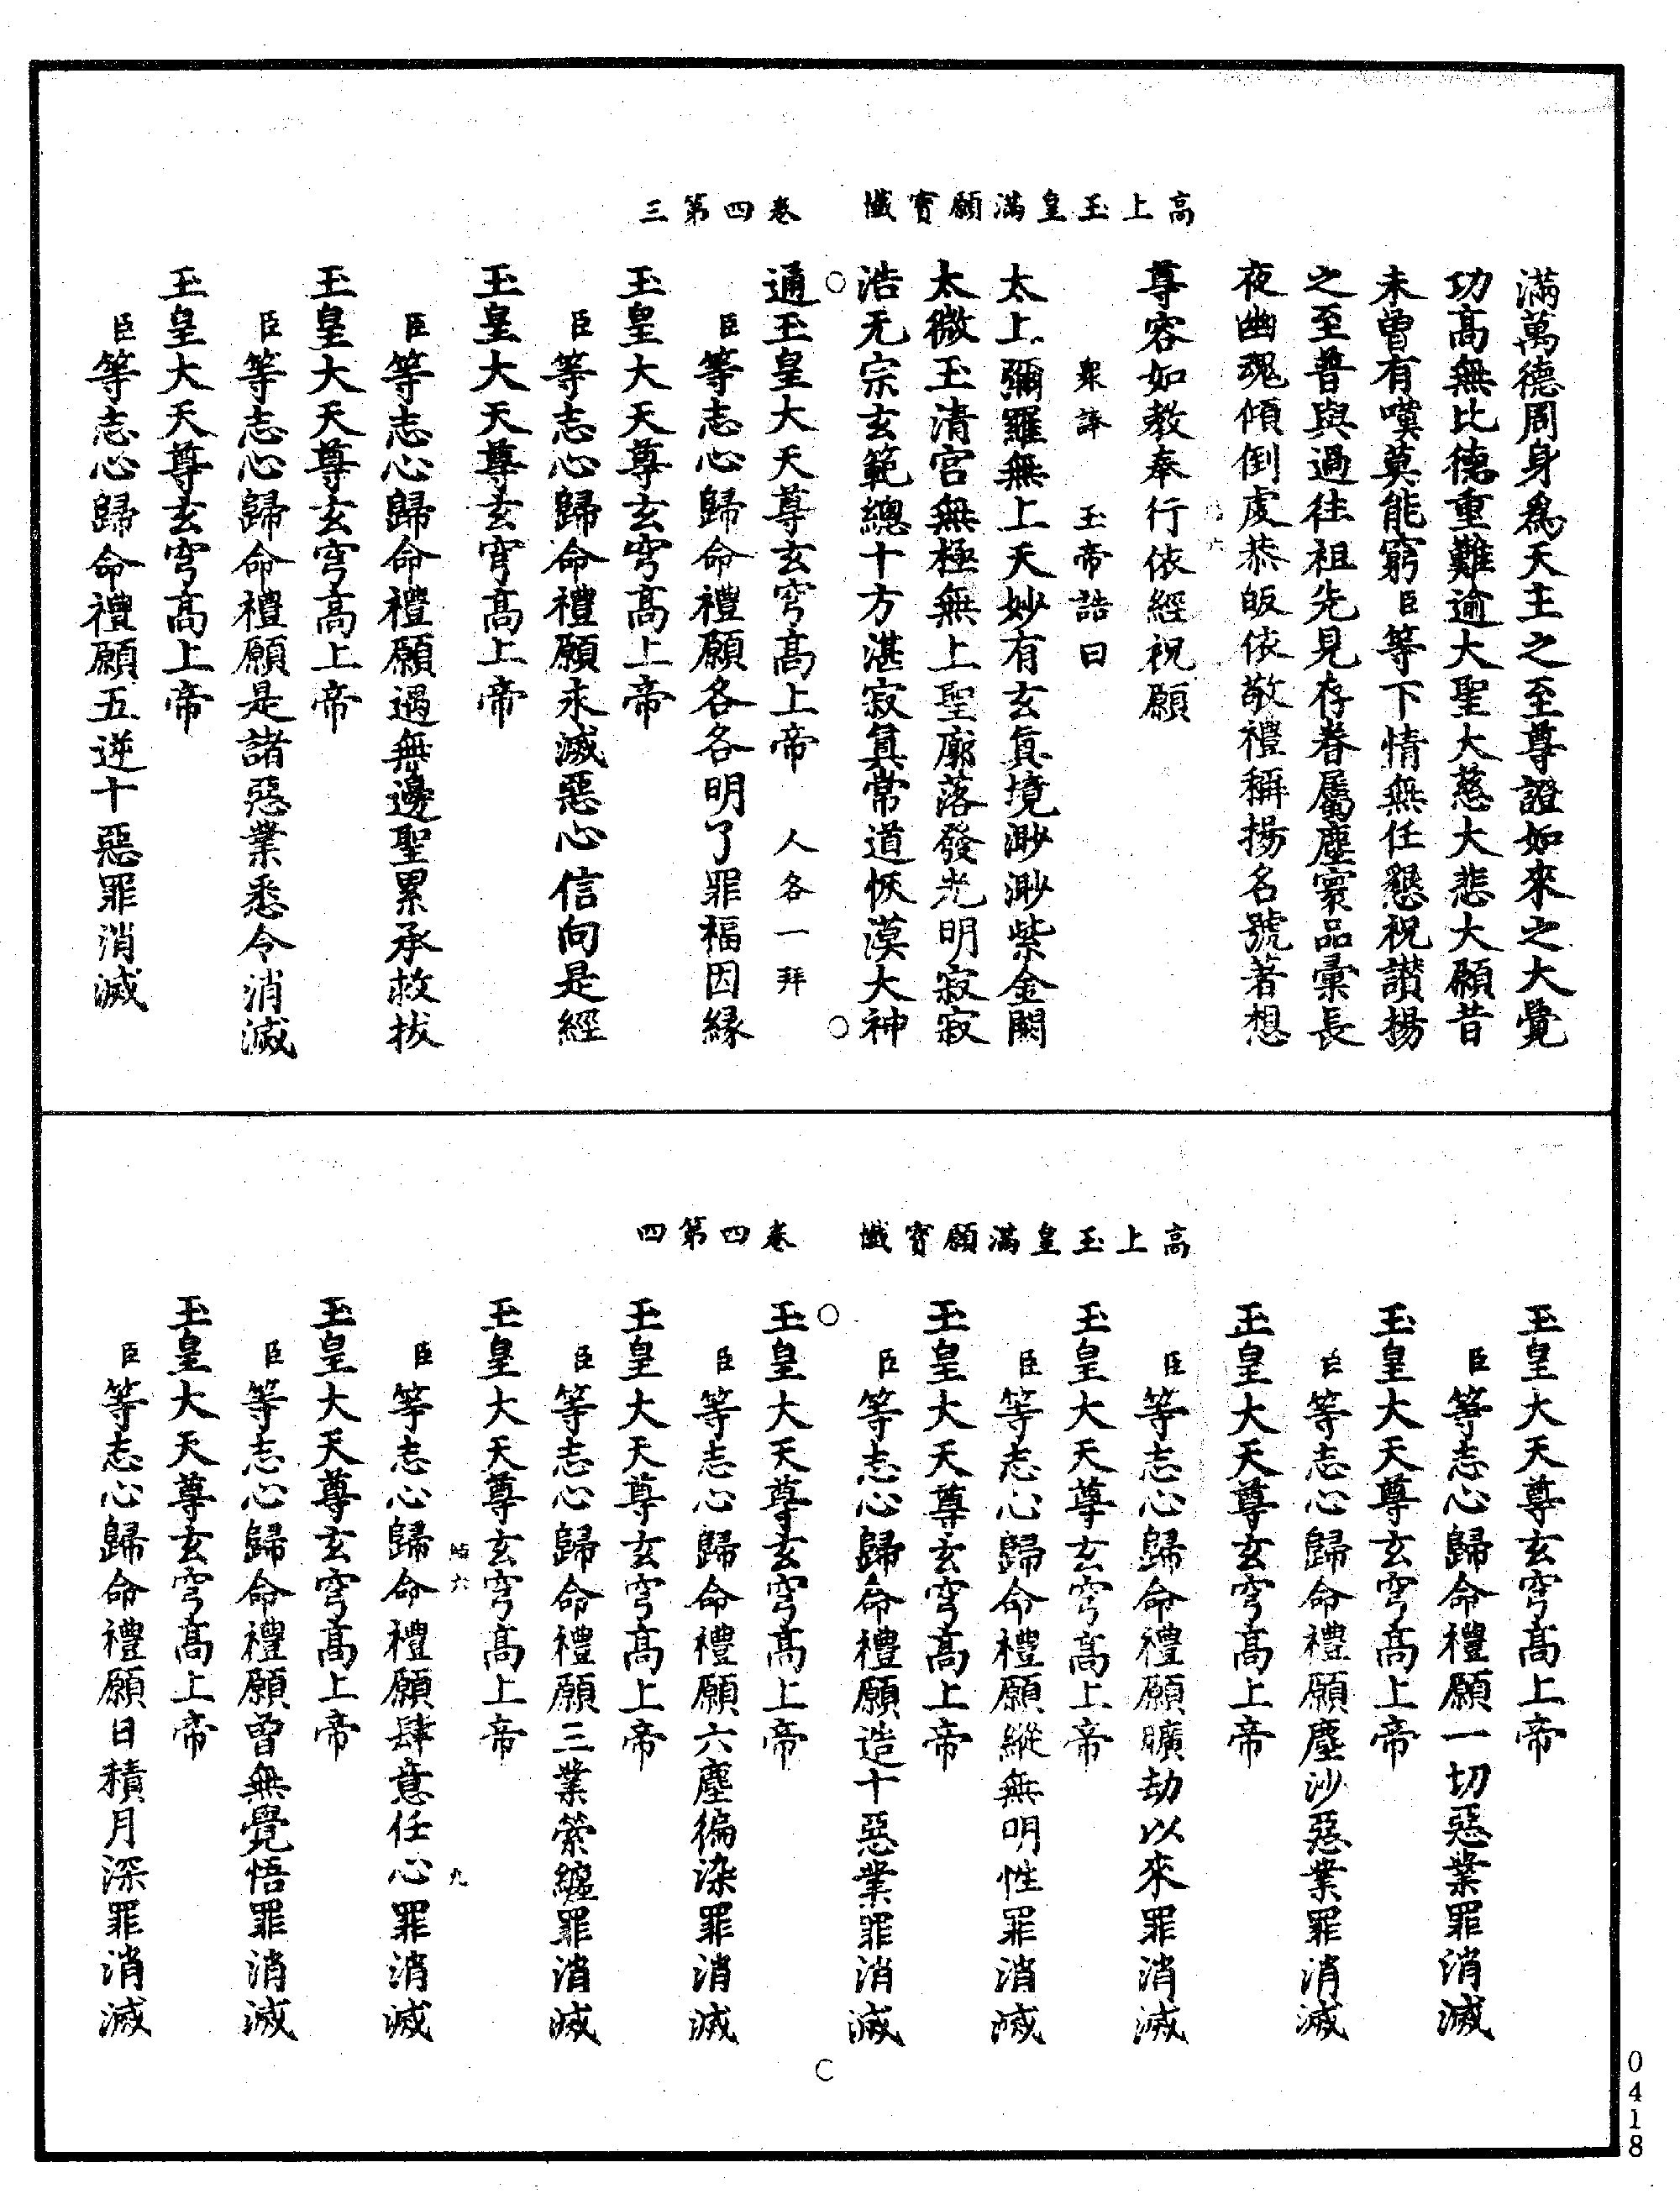 高上玉皇滿願寶懺　卷四第三
滿萬德周身為天主之至尊證如來之大覺
功高無比德重難逾大聖大慈大悲大願昔
未曾有嘆莫能窮臣等下情無任懇祝讃揚
之至普與過往祖先見存眷屬塵寰品彙長
夜幽魂傾倒虔恭皈依敬禮稱揚名號著想
尊容如教奉行依經祝願
衆諱　玉帝誥曰
太上彌羅無上天妙有玄真境渺渺紫金闕
太微玉清宫無極無上聖廓落發光明寂寂
浩无宗玄範總十方湛寂真常道恢漠大神
通玉皇大天尊玄穹高上帝　人各一拜
臣等志心歸命禮願各各明了罪福因緣
玉皇大天尊玄穹高上帝
臣等志心歸命禮願永滅惡心信向是經
玉皇大天尊玄穹高上帝
臣等志心歸命禮願過無邊聖累承救拔
玉皇大天尊玄穹高上帝
臣等志心歸命禮願是諸惡業悉令消滅
玉皇大天尊玄穹高上帝
臣等志心歸命禮願五逆十惡罪消滅
高上玉皇滿願寶懺　卷四第四
玉皇大天尊玄穹高上帝
臣等志心歸命禮願一切惡業罪消滅
玉皇大天尊玄穹高上帝
臣等志心歸命禮願塵沙惡業罪消滅
玉皇大天尊玄穹高上帝
臣等志心歸命禮願曠劫以來罪消滅
玉皇大天尊玄穹高上帝
臣等志心歸命禮願縱無明性罪消滅
玉皇大天尊玄穹高上帝
臣等志心歸命禮願造十惡業罪消滅
玉皇大天尊玄穹高上帝
臣等志心歸命禮願六塵徧染罪消滅
玉皇大天尊玄穹高上帝
臣等志心歸命禮願三業縈纏罪消滅
玉皇大天尊玄穹高上帝
六　九
臣等志心歸命禮願肆意任心罪消滅
玉皇大天尊玄穹高上帝
臣等志心歸命禮願曾無覺悟罪消滅
玉皇大天尊玄穹高上帝
臣等志心歸命禮願日積月深罪消滅
0418